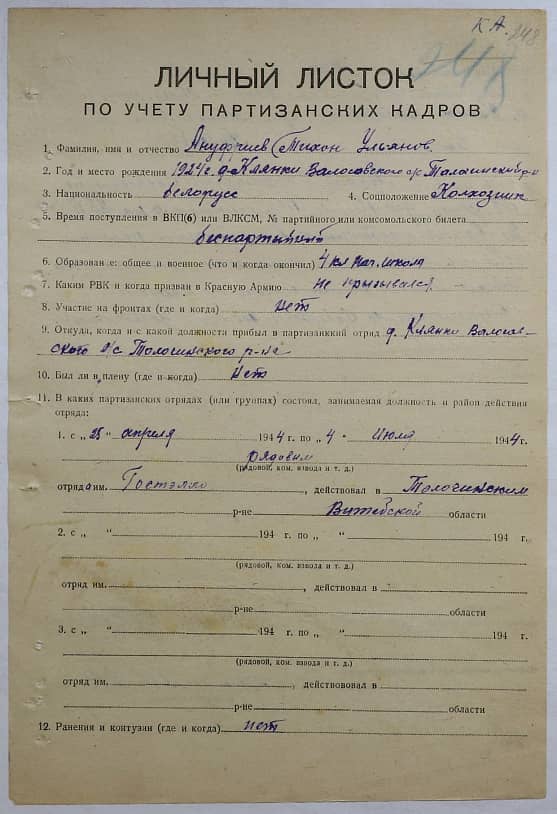 К А. 248
248
ЛИЧНЫЙ ЛИСТОК
ПО УЧЕТУ ПАРТИЗАНСКИХ КАДРОВ
1. Фамилия, имя и отчество Ануфриев Тихон Ульянов.
2. Год и место рождения 1924 г. д. Клянки Валосовского с/с Талочинский р-н
3. Национальность белорусс 4. Соцположение Колхозник
5. Время поступления в ВКП(б) или ВЛКСМ, № партийного или комсомольского билета
беспартийный
6. Образован е: общее и военное (что и когда окончил) 4 кл нач. школа
7. Каким РВК и когда призван в Красную Армию не призывался
8. Участие на фронтах (где и когда) нет
9. Откуда, когда и с какой должности прибыл в партизанкий отряд д. Клянки Валосов-
ского с/с Толочинского р-на
10. Был ли в плену (где и когда) нет
11. В каких партизанских отрядах (или группах) состоял, занимаемая должность и район действия
отряда:
1. с „25 апреля 1944 г. по „4" июля 1944 г.
рядовым
(рядовой, ком. взвода и т. д.)
отряд им. Гостэлло, действовал в Толочинским
р-не Витебской области
2. с „ " 194 г. по „ " 194 г.
(рядовой, ком. взвода и т. д.)
отряд им. , действовал в
р-не области
3. с „ " 194 г. по „ " 194 г.
(рядовой, ком. взвода и т. д.)
отряд им. , действовал в
р-не области
12. Ранения и контузии (где и когда) нет